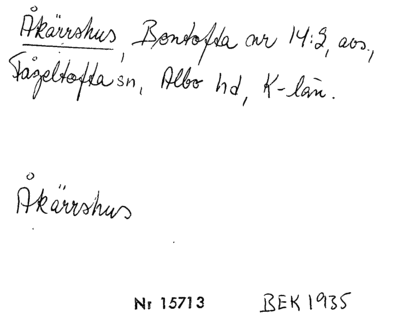 Åkärrshus, Bontofta nr 14:2, avs.,
Fågeltofta sn, Albo hd, K-län.
Åkärrshus
Nr 15713 BEK 1935